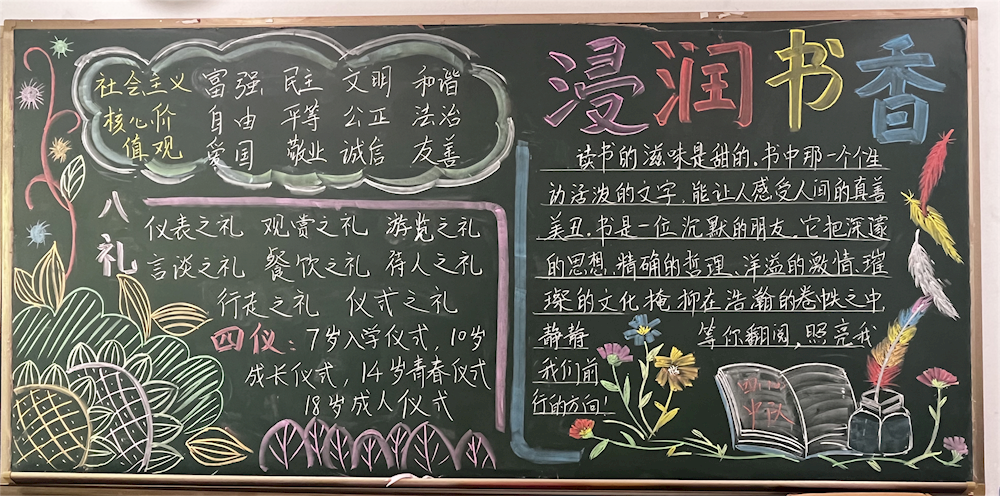 社会主义 富强 民主 文明 和谐
核心价 自由 平等 公正 法治
值观 爱国 敬业 诚信 友善
八礼
仪表之礼 观赏之礼 游览之礼
言谈之礼 餐饮之礼 待人之礼
行走之礼 仪式之礼
四仪：7岁入学仪式，10岁
成长仪式，14岁青春仪式
18岁成人仪式
浸润书香
读书的滋味是甜的、书中那一个个生
动活泼的文字，能让人感受人间的真善
美丑。书是一位沉默的朋友。它把深邃
的思想、精确的哲理、洋溢的激情、璀
璨的文化掩抑在浩瀚的卷帙之中，
静静 等你翻阅，照亮我
我们前
行的方向！